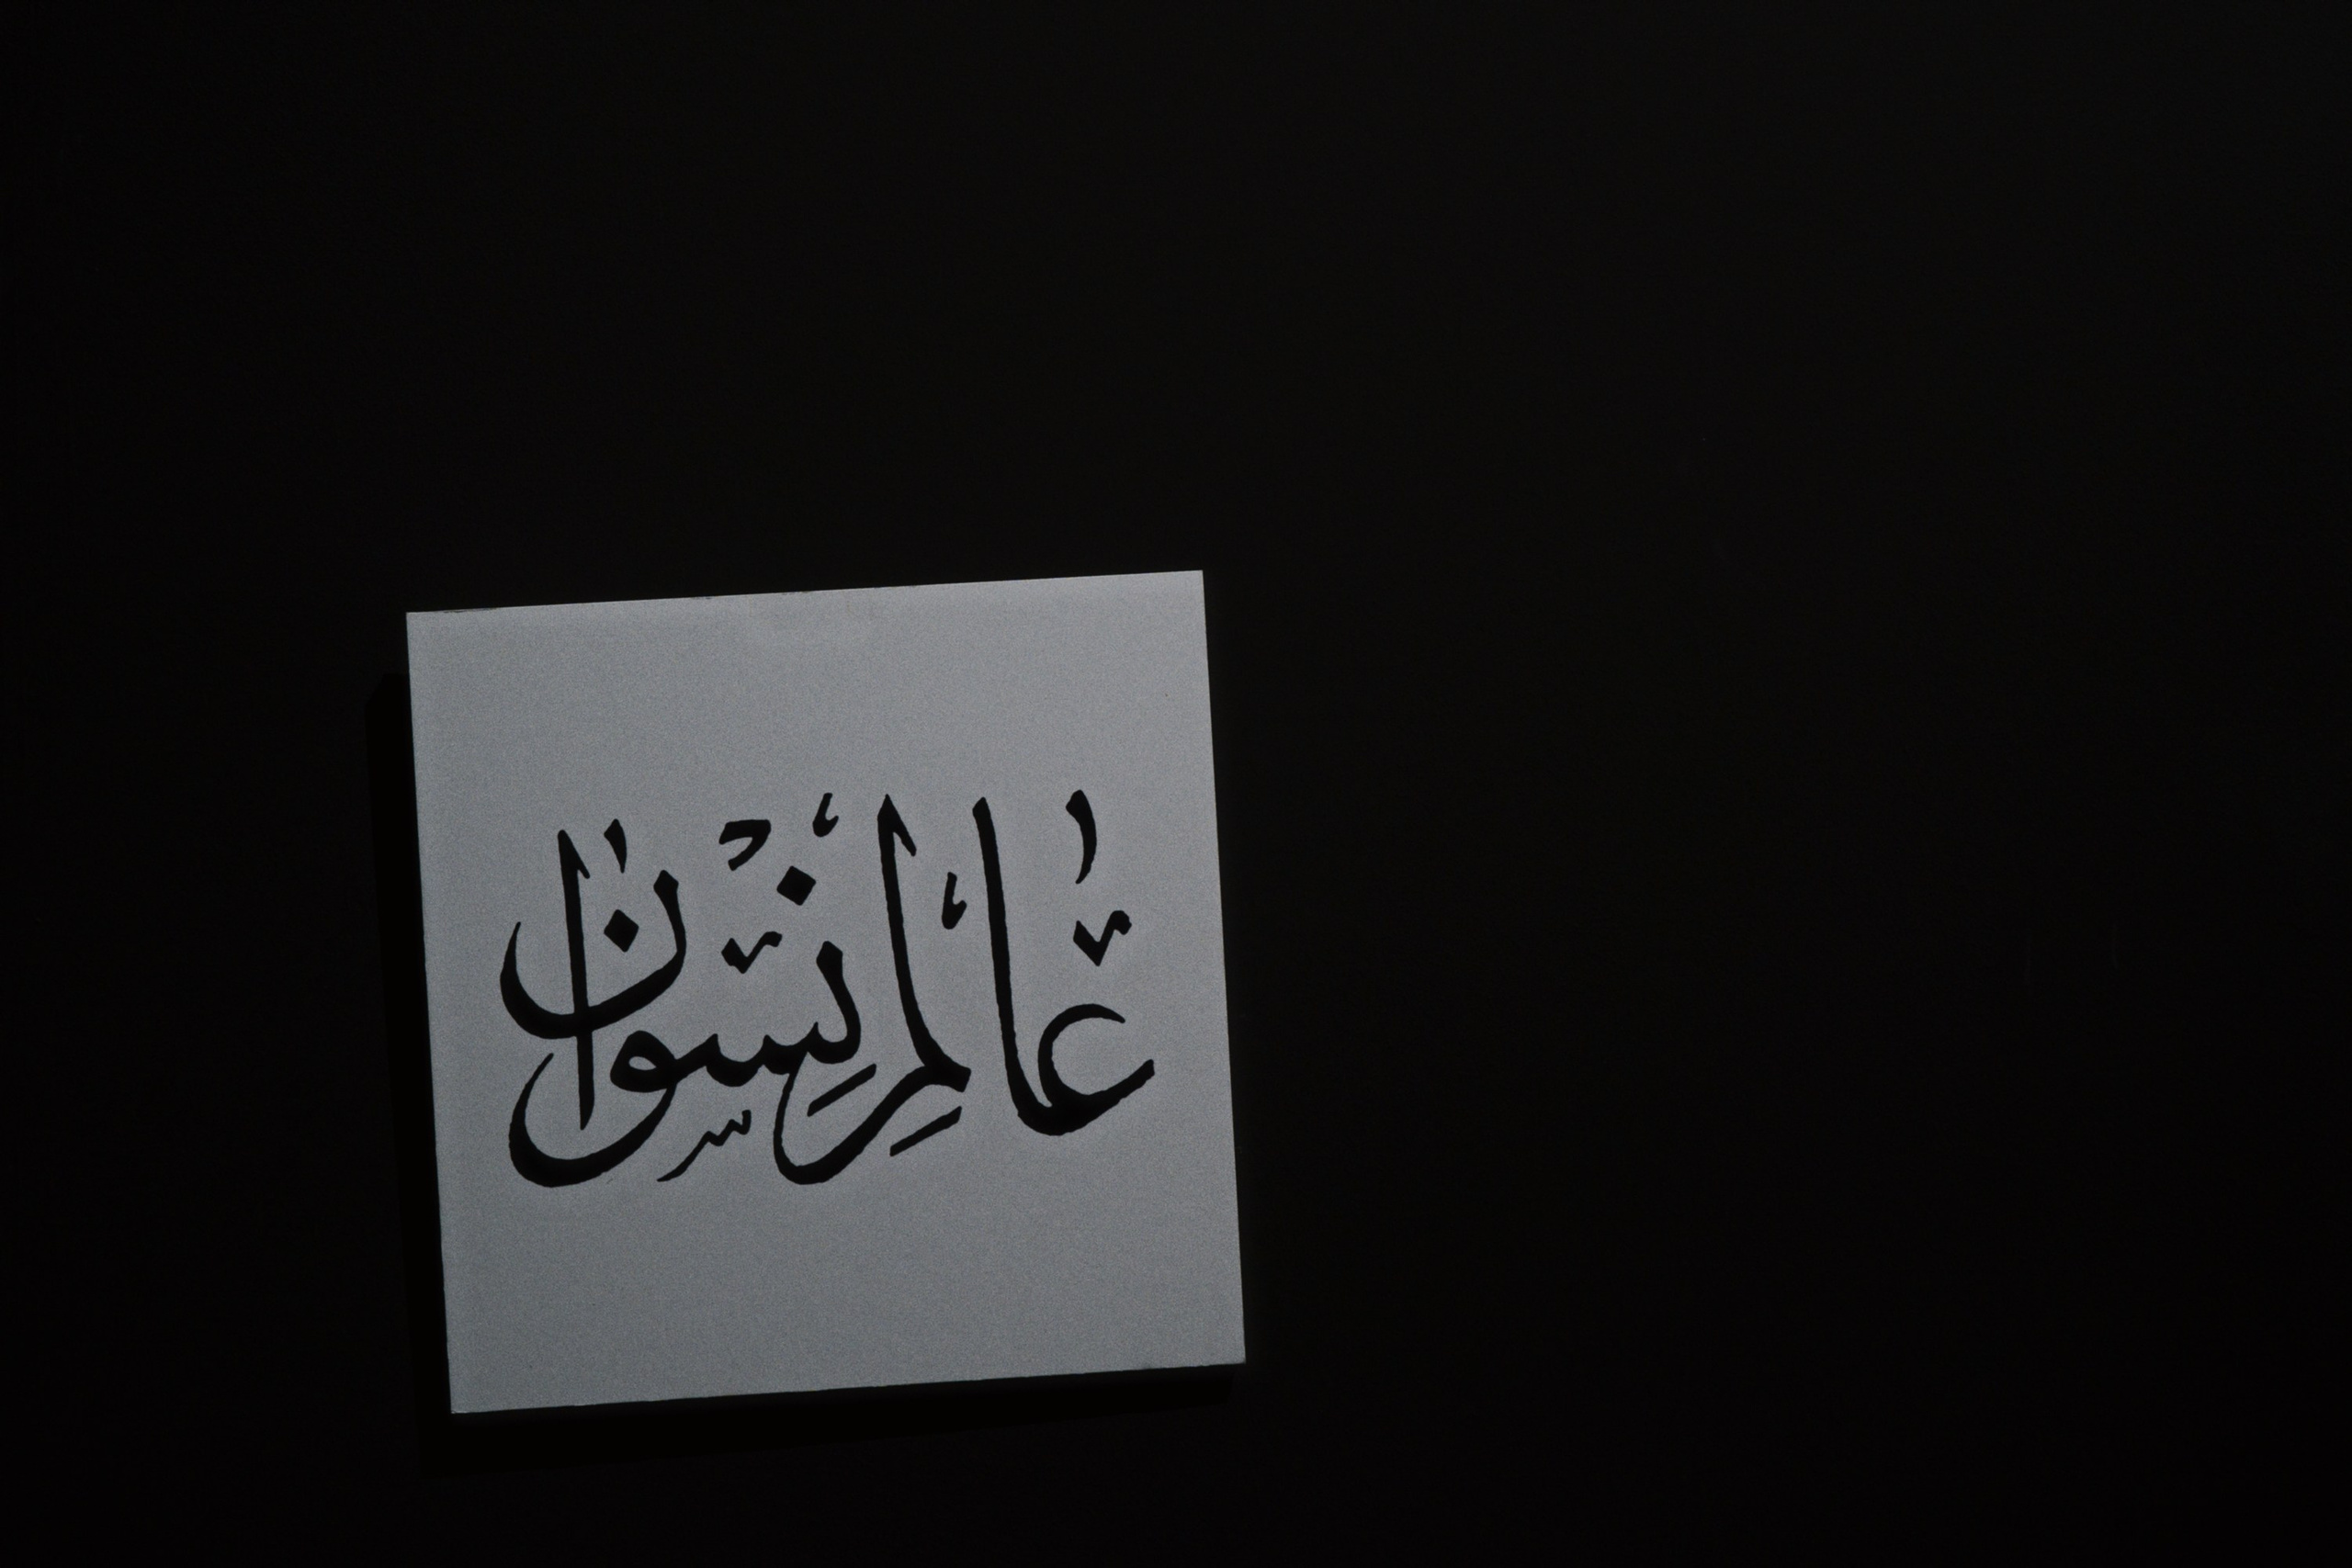 عالمِ نِسْوان